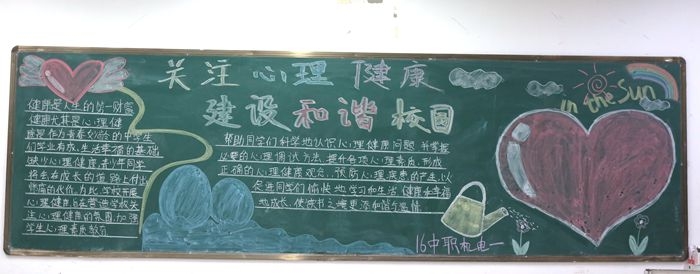 关注心理健康
建设和谐校园
in the Sun
健康是人生的第一财富
健康尤其是心理健
康是作为青春妙龄的中学生
们学业有成,生活幸福的基础
缺少心理健康,青少年同学
将会在成长的道路上付出
惨痛的代价,为此,学校开展
心理健康旨在营造学校关
注心理健康的氛围,加强
学生心理素质教育
帮助同学们科学地认识心理健康问题,并掌握
必要的心理调试方法,提升各项心理素质,形成
正确的心理健康观念,预防心理疾患的产生,以
促进同学们愉快地学习和生活,健康和幸福
地成长,使读书之境更添和谐与温情
16中职机电一